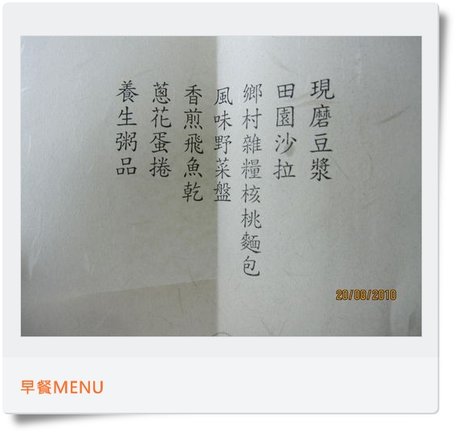 現磨豆漿
田園沙拉
鄉村雜糧核桃麵包
風味野菜盤
香煎飛魚乾
蔥花蛋捲
養生粥品
20/08/2010
早餐MENU